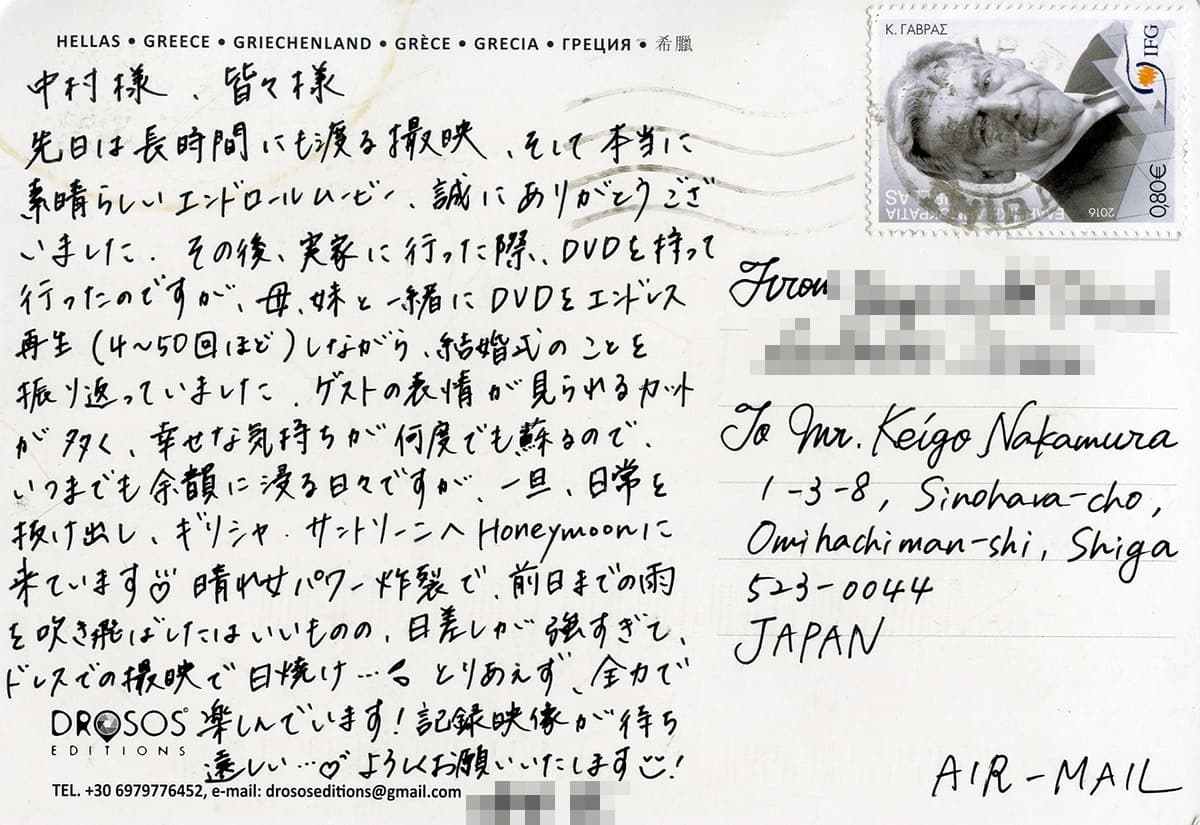 HELLAS • GREECE • GRIECHENLAND • GRÈCE • GRECIA • ГРЕЦИЯ • 希臘
中村様、皆々様
先日は長時間にも渡る撮映、そして本当に
素晴らしいエンドロールムービー、誠にありがとうござ
いました。その後、実家に行った際、DVDを持って
行ったのですが、母、妹と一緒にDVDをエンドレス
再生(4~50回ほど)しながら、結婚式のことを
振り返っていました。ゲストの表情が見られるカット
が多く、幸せな気持ちが何度でも蘇るので、
いつまでも余韻に浸る日々ですが、一旦、日常を
抜け出し、ギリシャ・サントリーニへHoneymoonに
来ています♡ 晴れ女パワー炸裂で、前日までの雨
を吹き飛ばしたはいいものの、日差しが強すぎて、
ドレスでの撮映で日焼け… とりあえず、全力で
楽しんでいます!記録映像が待ち
遠しい…♡ よろしくお願いいたします!
DROSOS
EDITIONS
TEL. +30 6979776452, e-mail: drososeditions@gmail.com
Κ. ΓΑΒΡΑΣ
IFG
2016
0,80€
From
To Mr. Keigo Nakamura
1-3-8, Sinohara-cho,
Omihachiman-shi, Shiga
523-0044
JAPAN
AIR-MAIL